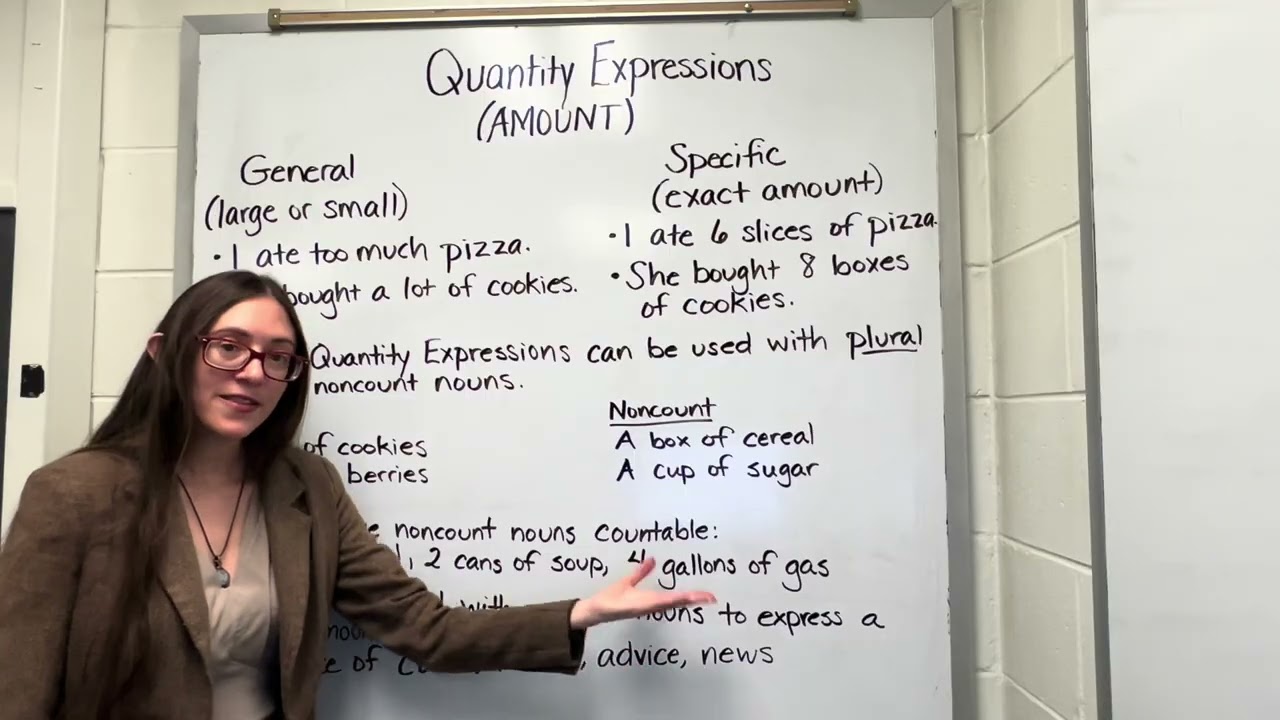 Quantity Expressions
(AMOUNT)
General
(large or small)
• I ate too much pizza.
bought a lot of cookies.
Specific
(exact amount)
• I ate 6 slices of pizza.
• She bought 8 boxes
of cookies.
Quantity Expressions can be used with plural
noncount nouns.
of cookies
berries
Noncount
A box of cereal
A cup of sugar
noncount nouns countable:
2 cans of soup, 4 gallons of gas
with nouns to express a
of advice, news